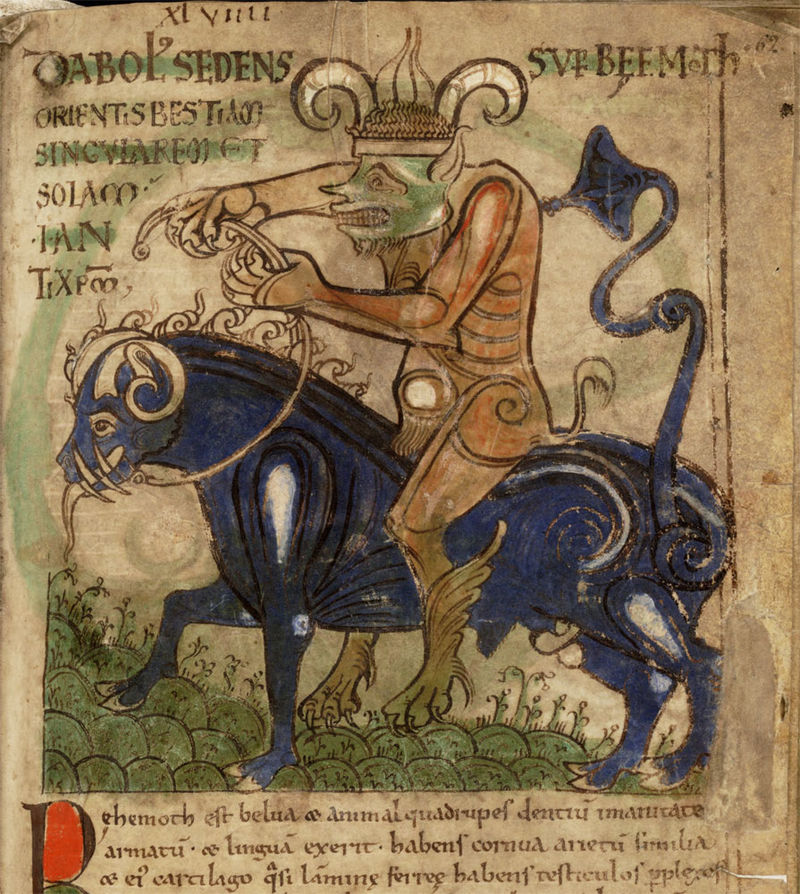 xl viiii
DIABOLꝰ SEDENS SVP BEEMOTh 62
ORIENTIS BESTIAM
SINGVLAREM ET
SOLAM
·I· AN
TIXPM
Behemoth est belua & animal quadrupes dentiū inmanitate
armatū · & linguā exerit · habens cornua arietū similia
& eiꝰ cartilago q̄si lāminę ferreę habens testiculos pplexos